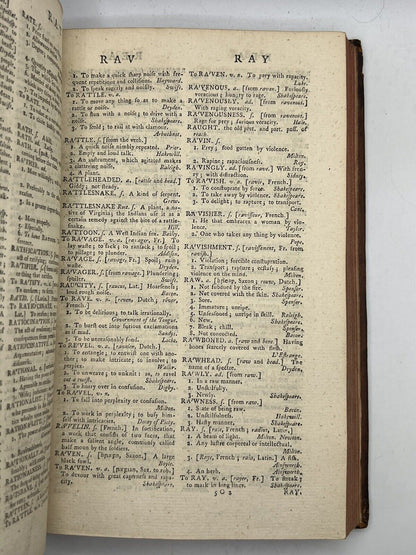 RAV
RAY
1. To make a quick sharp noise with fre-
quent repetitions and collisions. Hayward.
2. To speak eagerly and noisily. Swift.
To RATTLE. v. a.
1. To move any thing so as to make a
rattle. Dryden.
2. To stun with a noise; to drive with a
noise. Shakespeare.
3. To scold; to rail at with clamour.
Arbuthnot.
RATTLE. s. [from the verb.]
1. A quick noise nimbly repeated. Prior.
2. Empty and loud talk. Hakewill.
3. An instrument, which agitated makes a
clattering noise. Raleigh.
RATTLEHEADED. a. [rattle and head.]
Giddy; not steady.
RATTLESNAKE. s. A kind of serpent.
Grew.
RATTLESNAKE Root. s. A plant, a na-
tive of Virginia; the Indians use it as a
certain remedy against the bite of a rattle-
snake. Hill.
RATTOON. s. A West Indian fox. Bailey.
To RAVAGE. v. a. [ravager, Fr.] To
lay waste; to sack; to ransack; to spoil;
to pillage; to plunder. Addison.
RAVAGE. s. [ravage, Fr.] Spoil; ruin;
waste. Dryden.
RAVAGER. s. [from ravage.] Plunderer;
spoiler. Swift.
RAUCITY. s. [raucus, Lat.] Hoarseness;
Bacon.
To RAVE. v. n. [reven, Dutch; rêver,
French.]
1. To be delirious; to talk irrationally.
Government of the Tongue.
2. To burst out into furious exclamations
as if mad. Sandys.
3. To be unreasonably fond. Locke.
To RAVEL. v. a. [ravelen, Dutch.]
1. To entangle; to entwist one with ano-
ther; to make intricate; to involve; to
perplex. Waller.
2. To unweave; to unknit: as, to ravel
out a twist. Shakespeare.
3. To hurry over in confusion. Digby.
To RAVEL. v. n.
1. To fall into perplexity or confusion.
Milton.
2. To work in perplexity; to busy him-
self with intricacies. Decay of Piety.
RAVELIN. s. [French.] In fortification,
a work that consists of two faces, that
make a salient angle, commonly called
half moon by the soldiers.
RAVEN. s. [hræfn, Saxon.] A large
black fowl. Boyle.
To RAVEN. v. a. [ræfian, Sax. to rob.]
To devour with great eagerness and rapa-
city. Shakespeare.
To RAVEN. v. n. To prey with rapacity.
Luke.
RAVENOUS. a. [from raven.] Furiously
voracious; hungry to rage. Shakespeare.
RAVENOUSLY. ad. [from ravenous.]
With raging voracity.
RAVENOUSNESS. s. [from ravenous.]
Rage for prey; furious voracity. Hale.
RAUGHT. the old pret. and part. pass. of
reach.
RAVIN. s.
1. Prey; food gotten by violence.
Milton.
2. Rapine; rapaciousness. Ray.
RAVINGLY. ad. [from rave.] With fren-
zy; with distraction. Sidney.
To RAVISH. v. a. [ravir, French.]
1. To constuprate by force. Shakespeare.
2. To take away by violence. Shakespeare.
3. To delight; to rapture; to transport.
Cant.
RAVISHER. s. [ravisseur, Fr.]
1. He that embraces a woman by vio-
lence. Taylor.
2. One who takes any thing by violence.
Pope.
RAVISHMENT. s. [ravissement, Fr. from
ravish.]
1. Violation; forcible constupration.
2. Transport; rapture; ecstasy; pleasing
violence on the mind. Milton.
RAW. a. [hreap, Saxon; rouw, Dutch.]
1. Not subdued by the fire. Spenser.
2. Not covered with the skin. Shakespeare.
3. Sore. Spenser.
4. Immature; unripe.
5. Unseasoned; unripe in skill. Raleigh.
6. New. Shakespeare.
7. Bleak; chill. Spenser.
8. Not concocted. Bacon.
RAWBONED. a. [raw and bone.] Having
bones scarcely covered with flesh.
L'Estrange.
RAWHEAD. s. [raw and head.] The name
of a spectre. Dryden.
RAWLY. ad. [from raw.]
1. In a raw manner.
2. Unskilfully.
3. Newly. Shakespeare.
RAWNESS. s. [from raw.]
1. State of being raw. Bacon.
2. Unskilfulness. Hakewill.
3. Hasty manner. Shakespeare.
RAY. s. [raie, French; radius, Latin.]
1. A beam of light. Milton. Newton.
2. Any lustre corporeal or intellectual.
Milton.
3. [Raye, French; raia, Latin.] A fish.
Ainsworth.
4. An herb. Ainsworth.
To RAY. v. a. [rayer, Fr.] To streak;
to mark in long lines. Shakespeare.
5O2
RAY.